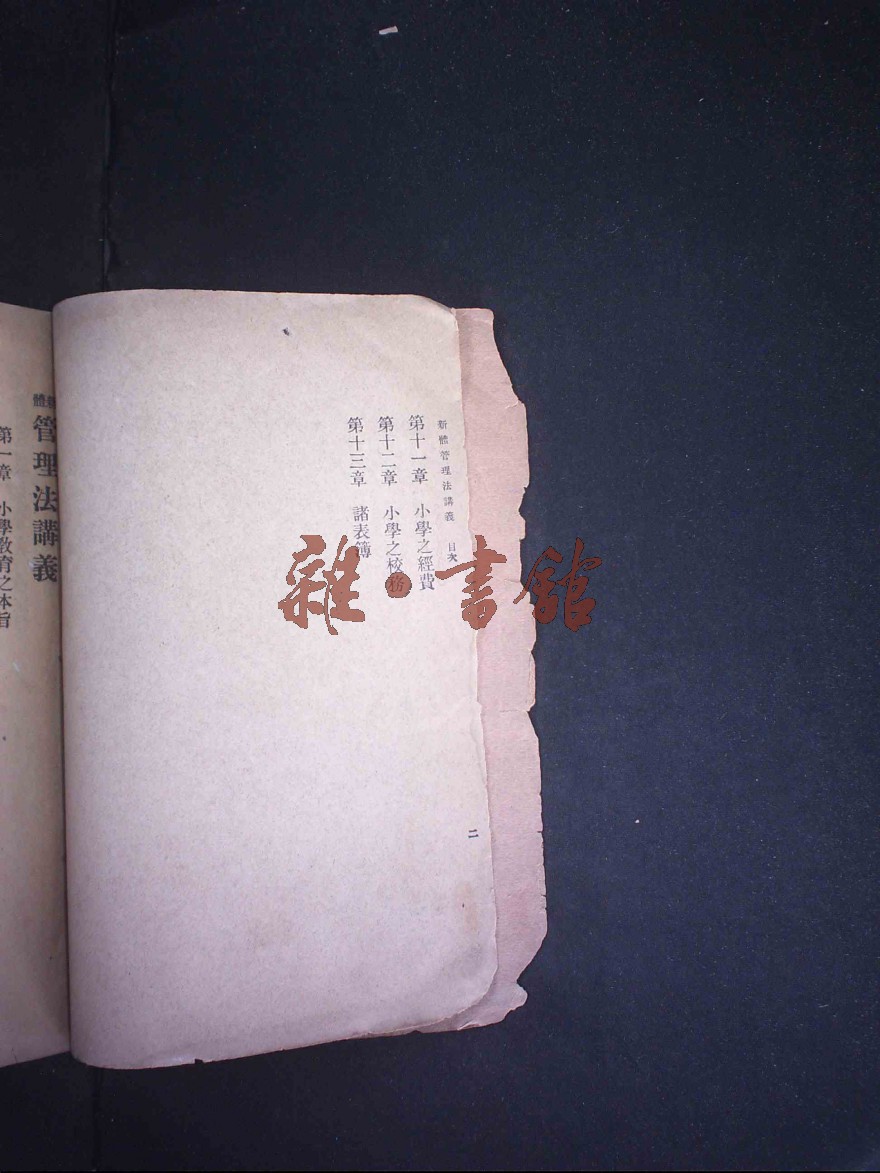 新體管理法講義 目次
第十一章 小學之經費
第十二章 小學之校務
第十三章 諸表簿
二
新體
管理法講義
第一章 小學教育之本旨
雜·書館